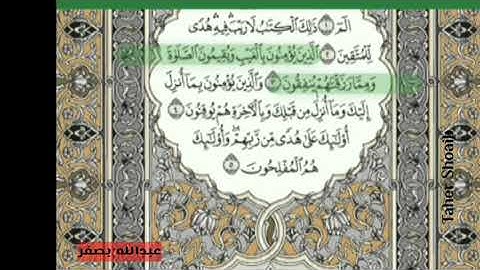 الٓمٓ ۝١ ذَٰلِكَ ٱلۡكِتَٰبُ لَا رَيۡبَۛ فِيهِۛ هُدٗى
لِّلۡمُتَّقِينَ ۝٢ ٱلَّذِينَ يُؤۡمِنُونَ بِٱلۡغَيۡبِ وَيُقِيمُونَ ٱلصَّلَوٰةَ
وَمِمَّا رَزَقۡنَٰهُمۡ يُنفِقُونَ ۝٣ وَٱلَّذِينَ يُؤۡمِنُونَ بِمَآ أُنزِلَ
إِلَيۡكَ وَمَآ أُنزِلَ مِن قَبۡلِكَ وَبِٱلۡأٓخِرَةِ هُمۡ يُوقِنُونَ ۝٤
أُوْلَٰٓئِكَ عَلَىٰ هُدٗى مِّن رَّبِّهِمۡۖ وَأُوْلَٰٓئِكَ
هُمُ ٱلۡمُفۡلِحُونَ ۝٥
عبدالله بصفر
Taher Shoaib